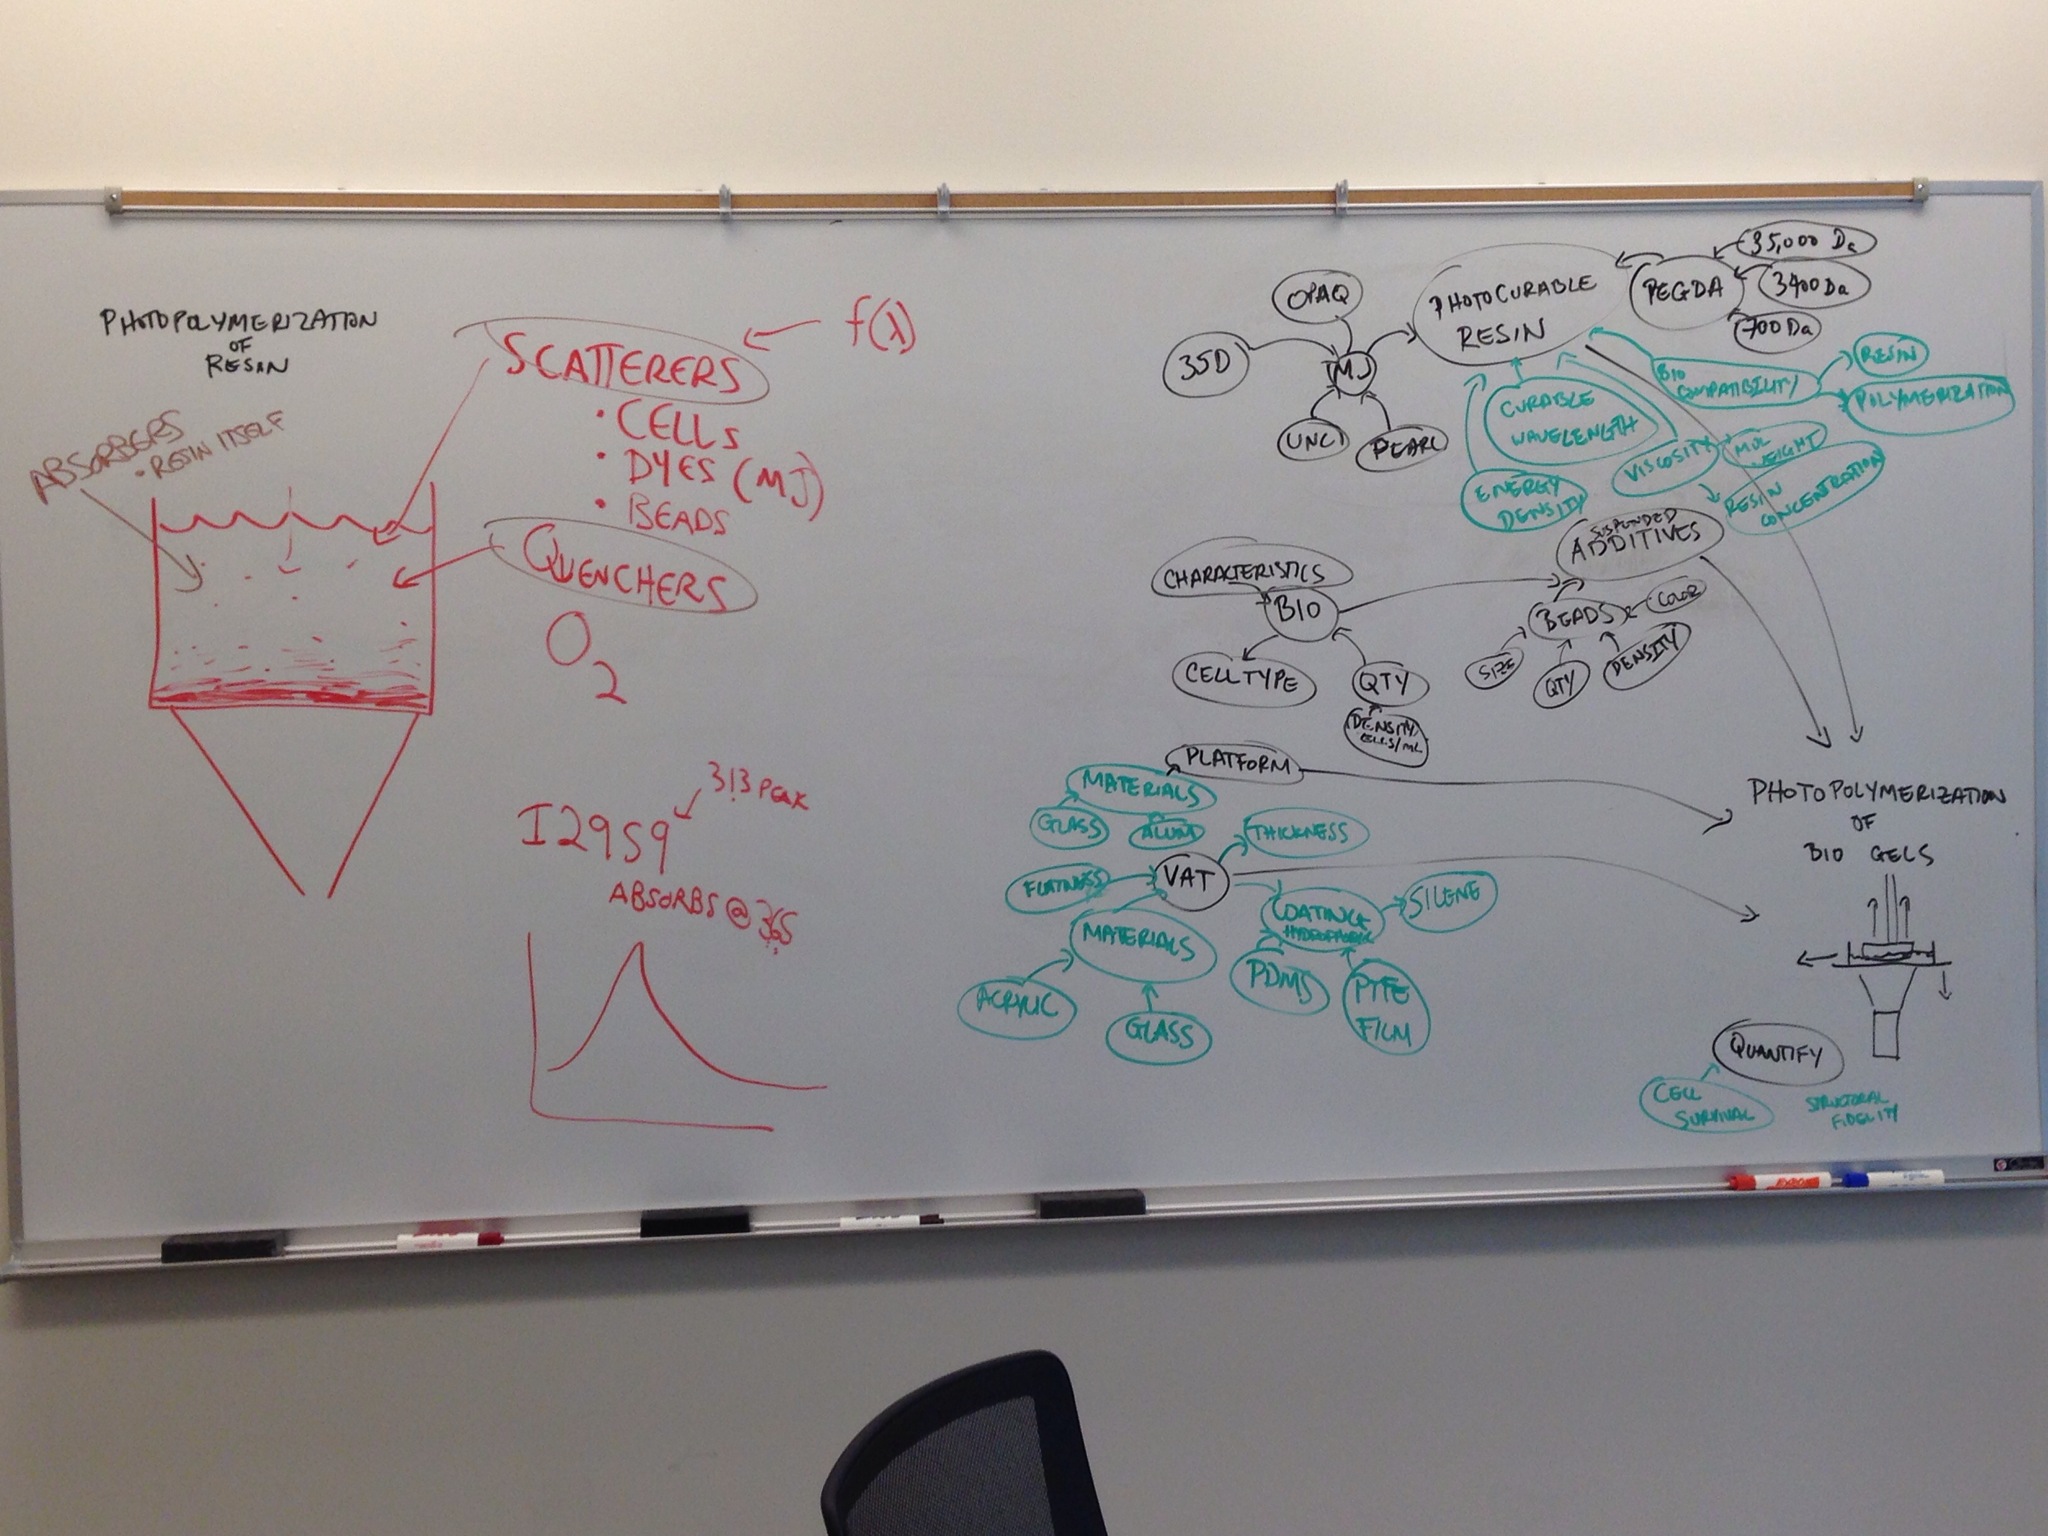 PHOTOPOLYMERIZATION
OF
RESIN
ABSORBERS
• RESIN ITSELF
SCATTERERS
f(λ)
• CELLS
• DYES (MJ)
• BEADS
QUENCHERS
O2
I2959
313 PEAK
ABSORBS @ 365
OPAQ
35D
MJ
UNCL
PEARL
PHOTOCURABLE
RESIN
PEGDA
35,000 Da
3400 Da
700 Da
BIO
COMPATIBILITY
RESIN
POLYMERIZATION
CURABLE
WAVELENGTH
VISCOSITY
MOL
WEIGHT
RESIN
CONCENTRATION
ENERGY
DENSITY
SUSPENDED
ADDITIVES
CHARACTERISTICS
BIO
CELL TYPE
QTY
DENSITY
CELLS/ML
BEADS
COLOR
SIZE
QTY
DENSITY
PLATFORM
MATERIALS
GLASS
ALUM
THICKNESS
FLATNESS
VAT
COATING
HYDROPHOBIC
SILENE
MATERIALS
PDMS
PTFE
FILM
ACRYLIC
GLASS
PHOTOPOLYMERIZATION
OF
BIO GELS
QUANTIFY
CELL
SURVIVAL
STRUCTURAL
FIDELITY
EXPO